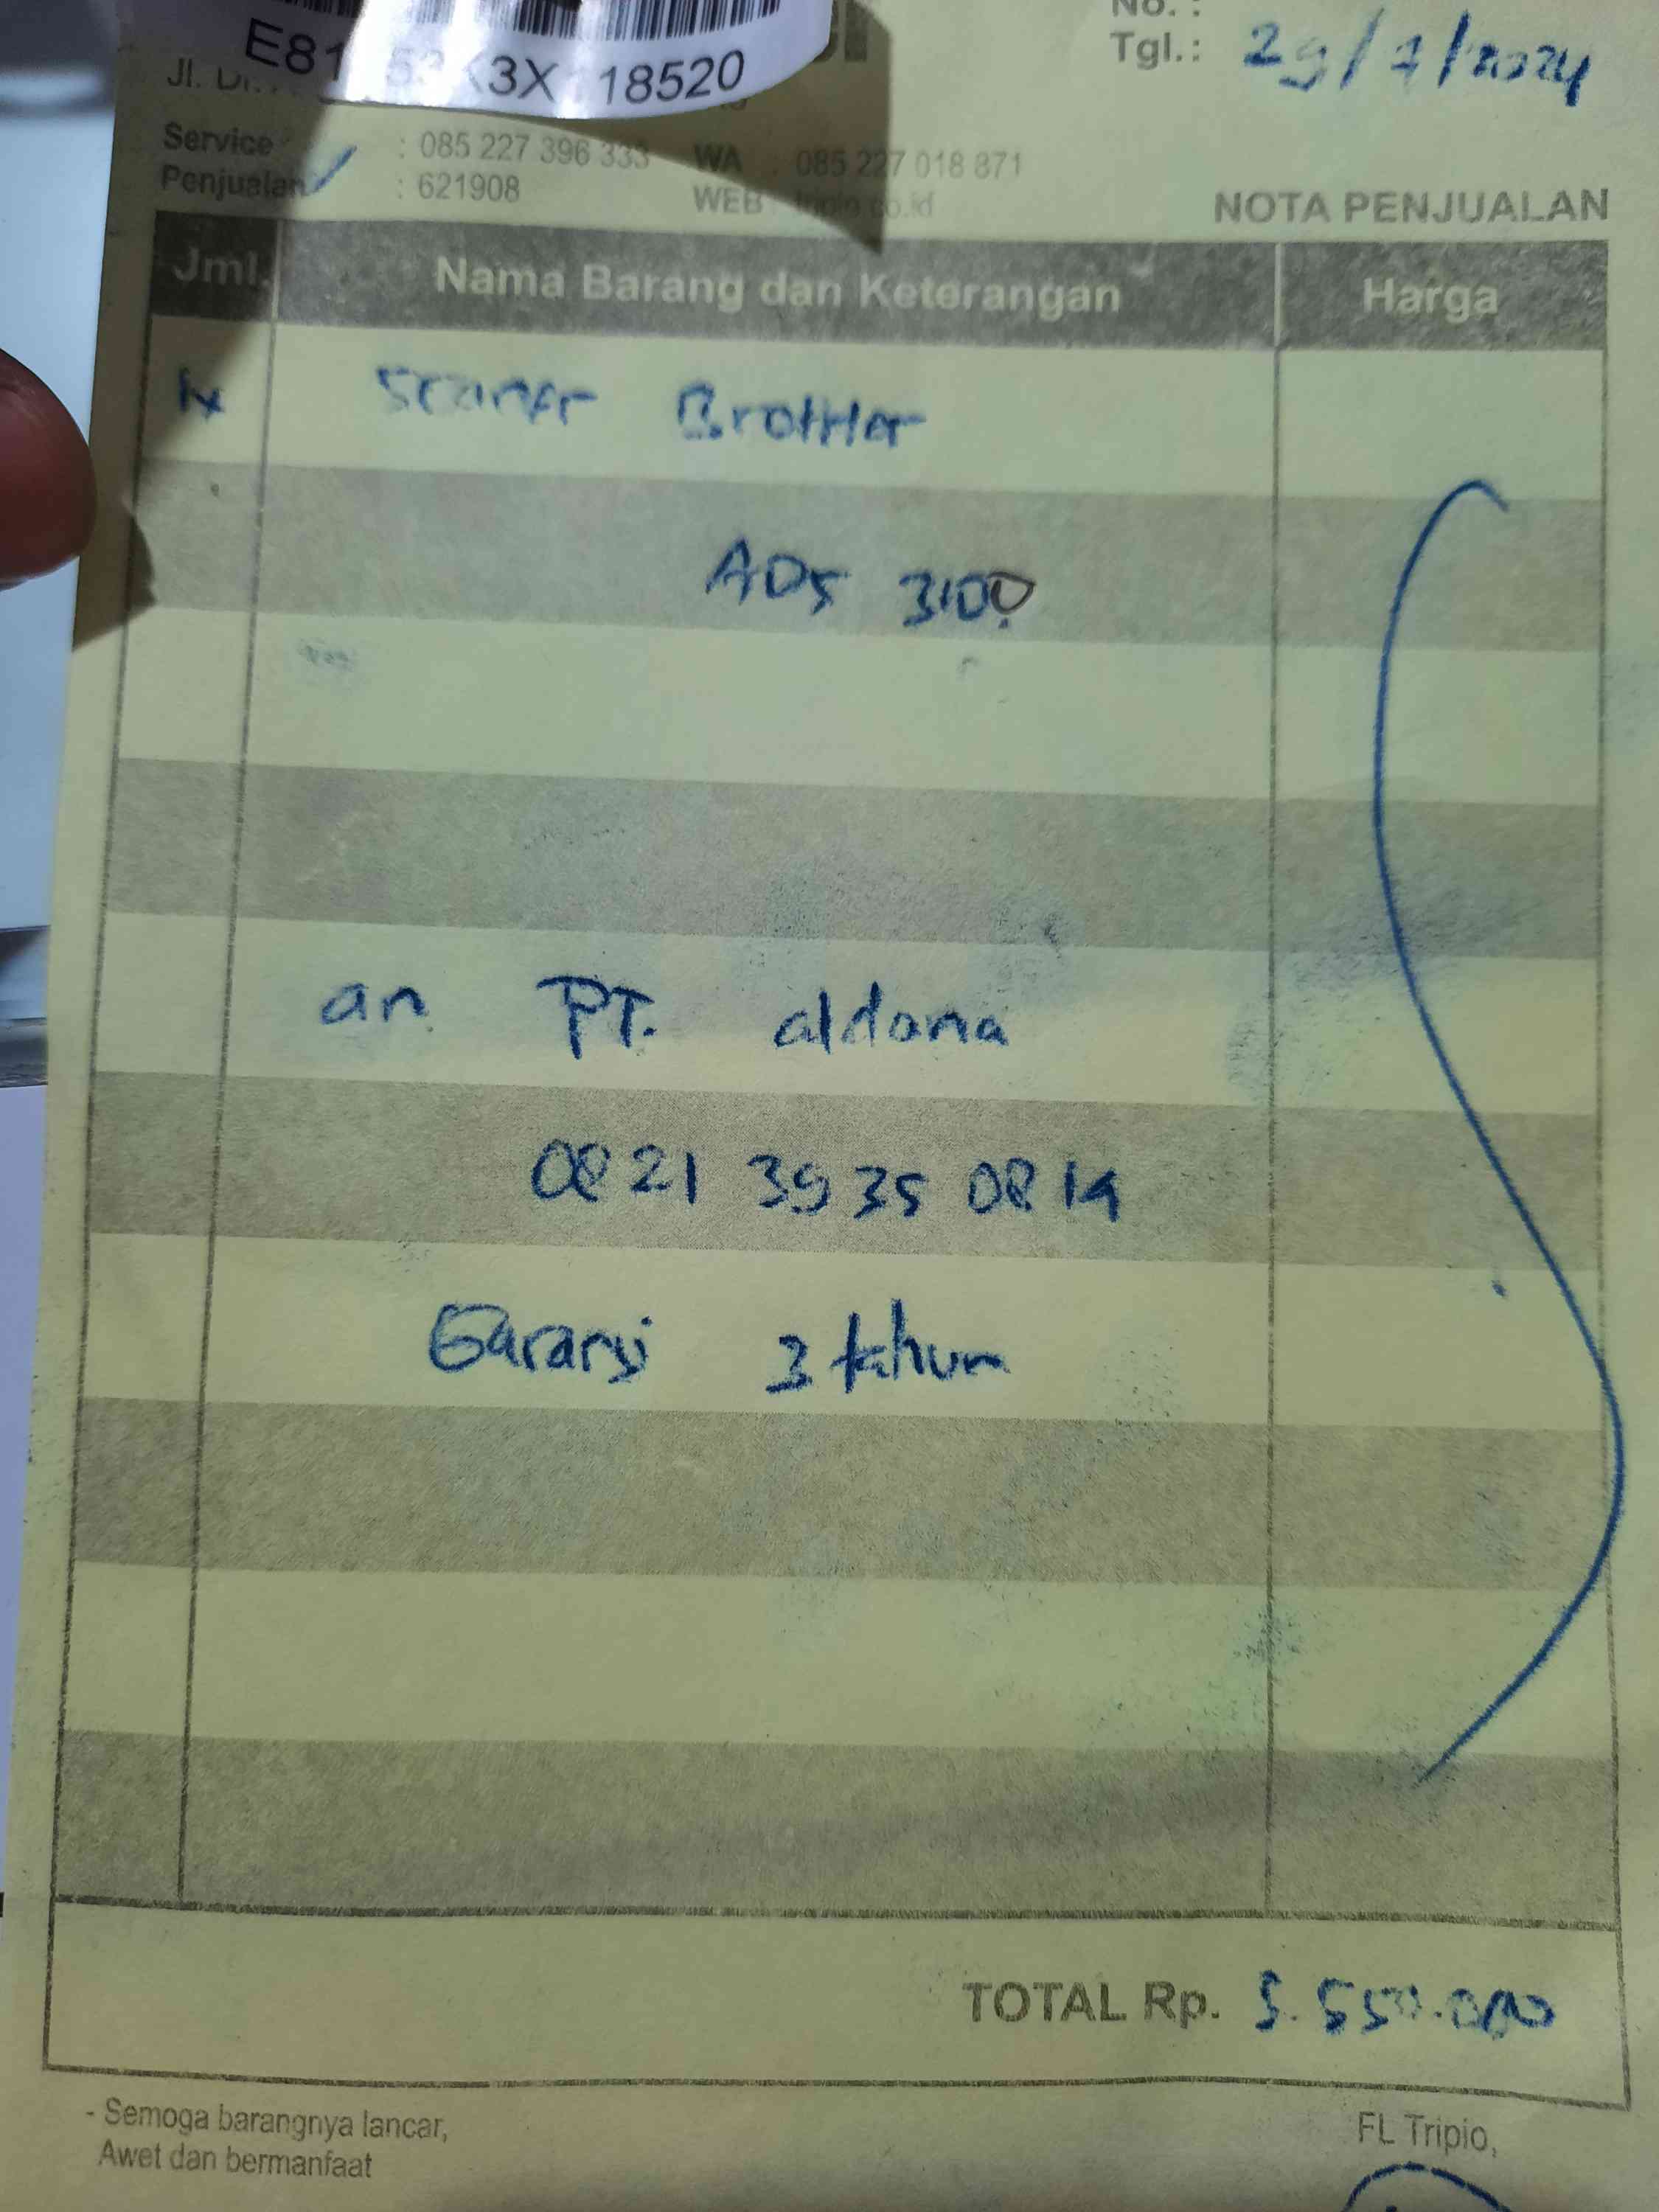 No. :
Tgl.: 29/7/2024
18520
Service : 085 227 396 333 WA : 085 227 018 871
Penjualan : 621908 WEB : tripio.co.id
NOTA PENJUALAN
Jml. Nama Barang dan Keterangan Harga
1x Scaner Brother
ADS 3100
an PT. aldona
0821 3935 0814
Garansi 3 tahun
TOTAL Rp. 5.550.000
- Semoga barangnya lancar,
Awet dan bermanfaat
FL Tripio,